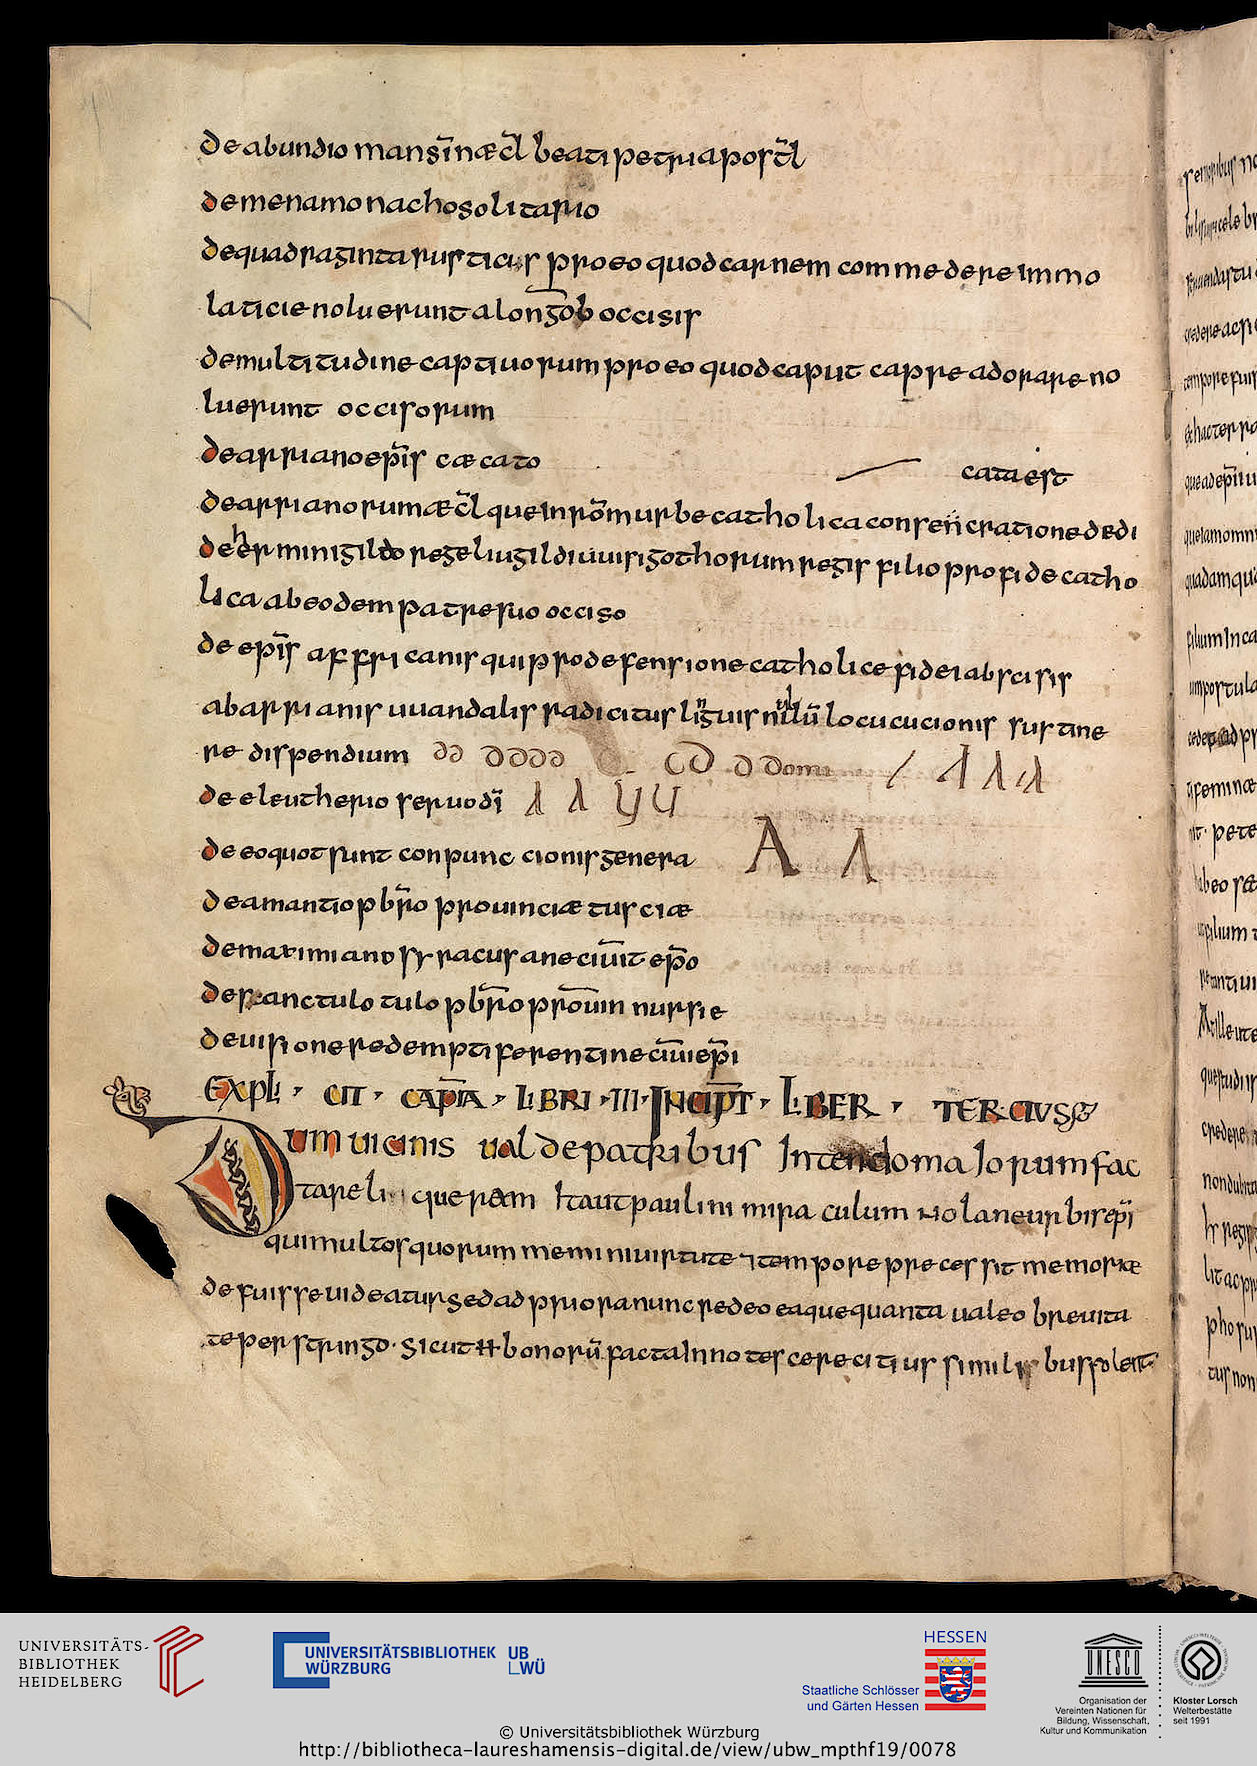 de abundio mansin æcl beati petri apostl
de mena monacho solitario
de quadraginta rusticis pro eo quod carnem commedere immo
laticie noluerunt a longob occisis
de multitudine captiuorum pro eo quod caput capre adorare no
luerunt occisorum
de arriano epis cæcato
cata est
de arrianorum æcl que in rom urbe catholica consencratione dedi
de herminigildo rege liugildi uuisigothorum regis filio pro fide catho
lica ab eodem patre suo occiso
de epis affricanis qui pro defensione catholice fidei abscisis
ab arrianis uuandalis radicitus linguis nulu locucucionis sustine
re dispendium
de eleutherio seruo di
de eo quot sunt conpunc cionis genera
de amantio pbro prouinciæ tusciæ
de maximiano syracusane ciuit epo
de sanctulo tulo pbro prouin nursie
de uisione redempti ferentine ciui epi
EXPLI CIT CAPTA LIBRI III INCIPT LIBER TERCIUS
DUM UICINIS ualde patribus Intendo maJorum fac
ta reli queram Itaut paulini miraculum Nolane urbis epi
qui multos quorum memini uirtute ⁊ tempore precessit memoriæ
defuisse uideatur sed ad priora nunc redeo eaque quanta ualeo breuita
te perstringo. sicut bonoru facta Innotescere citius similibus solent
© Universitätsbibliothek Würzburg
http://bibliotheca-laureshamensis-digital.de/view/ubw_mpthf19/0078
UNIVERSITÄTS-
BIBLIOTHEK
HEIDELBERG
UNIVERSITÄTSBIBLIOTHEK UB
WÜRZBURG WÜ
HESSEN
Staatliche Schlösser
und Gärten Hessen
UNESCO
Organisation der
Vereinten Nationen für
Bildung, Wissenschaft,
Kultur und Kommunikation
Kloster Lorsch
Welterbestätte
seit 1991